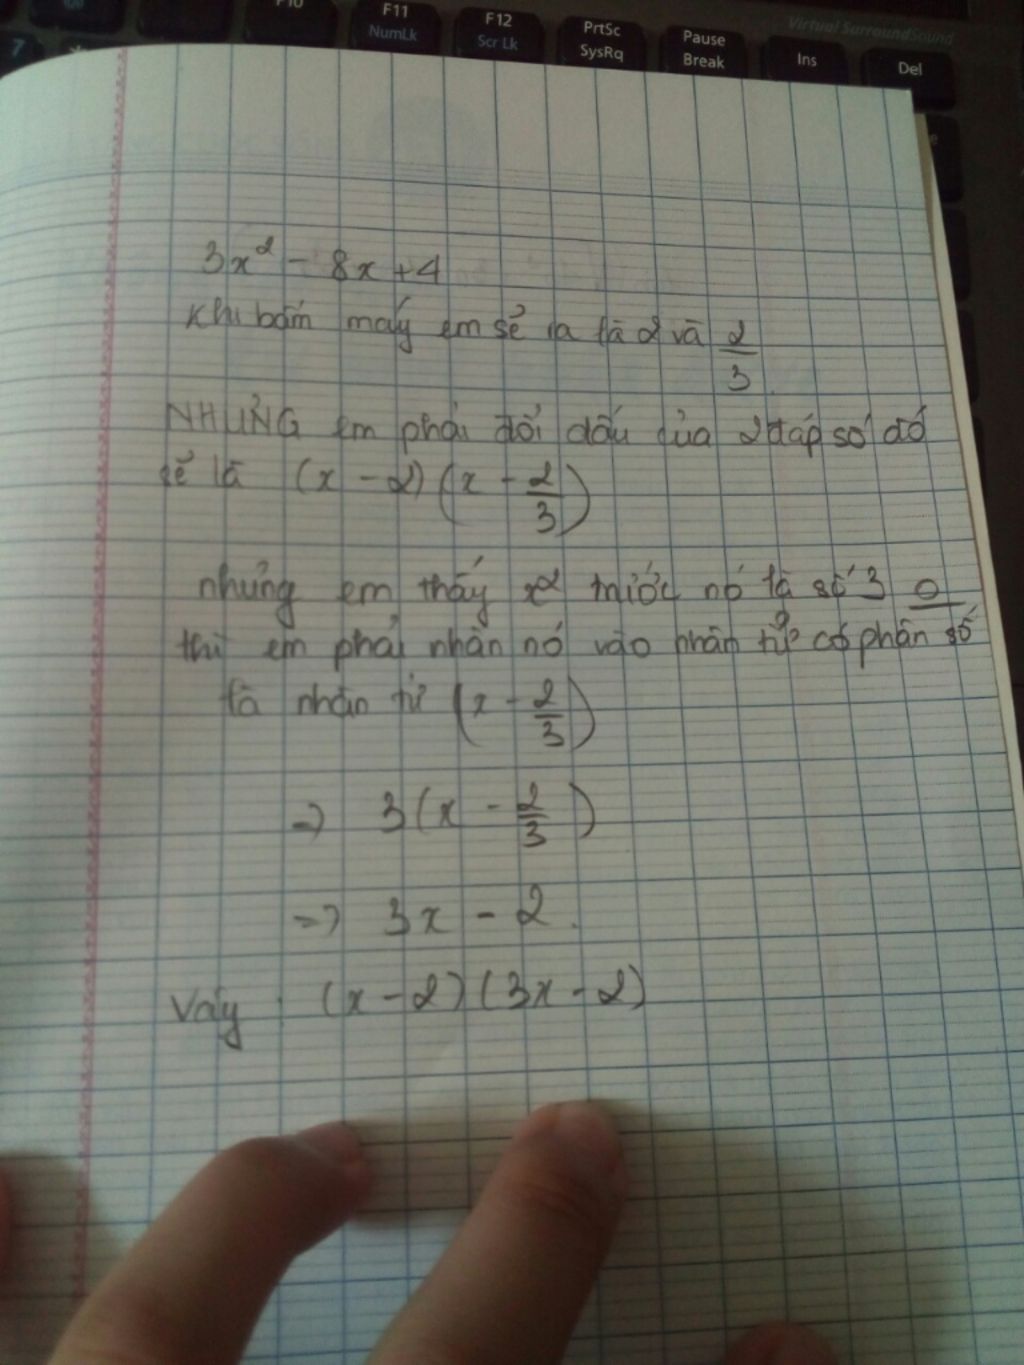 F10
F11
NumLk
F12
Scr Lk
PrtSc
SysRq
Pause
Break
Ins
Del
Virtual SurroundSound
7
3x² - 8x + 4
Khi bấm máy em sẽ ra là 2 và 2/3.
NHƯNG em phải đổi dấu của 2 đáp số đó
sẽ là (x - 2)(x - 2/3)
nhưng em thấy x² trước nó là số 3
thì em phải nhân nó vào nhân tử có phân số
là nhân tử (x - 2/3)
=> 3(x - 2/3)
=> 3x - 2.
Vậy : (x - 2)(3x - 2)